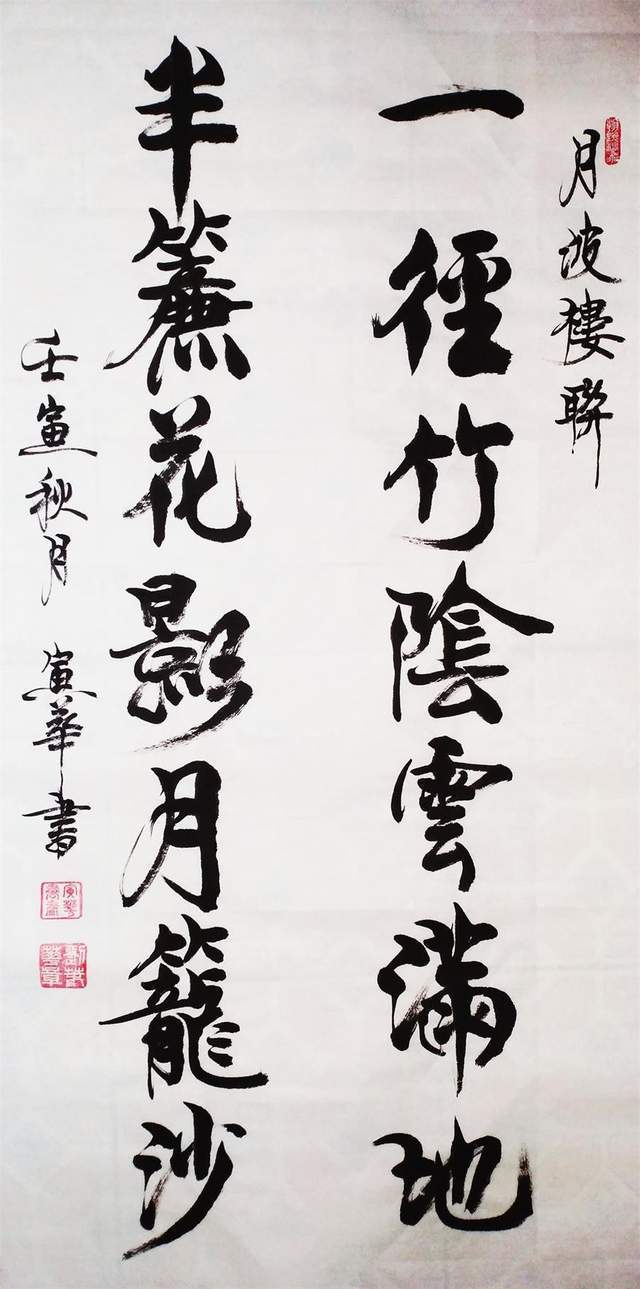 月波楼聨
一徑竹陰雲滿地
半簾花影月籠沙
壬寅秋月 寅華書